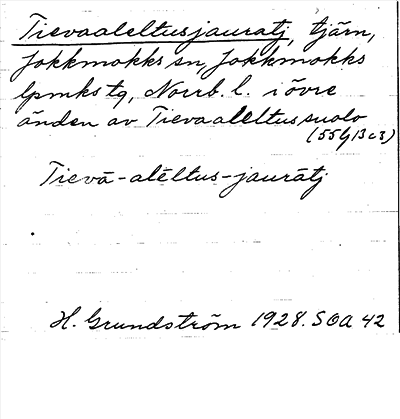 Tievaaleltusjauratj, tjärn,
Jokkmokks sn, Jokkmokks
lpmks tg, Norrb. l. i övre
änden av Tievaaleltussuolo
(55G13c3)
Tievā-alēltus-jaurātj
H. Grundström 1928. SOA 42